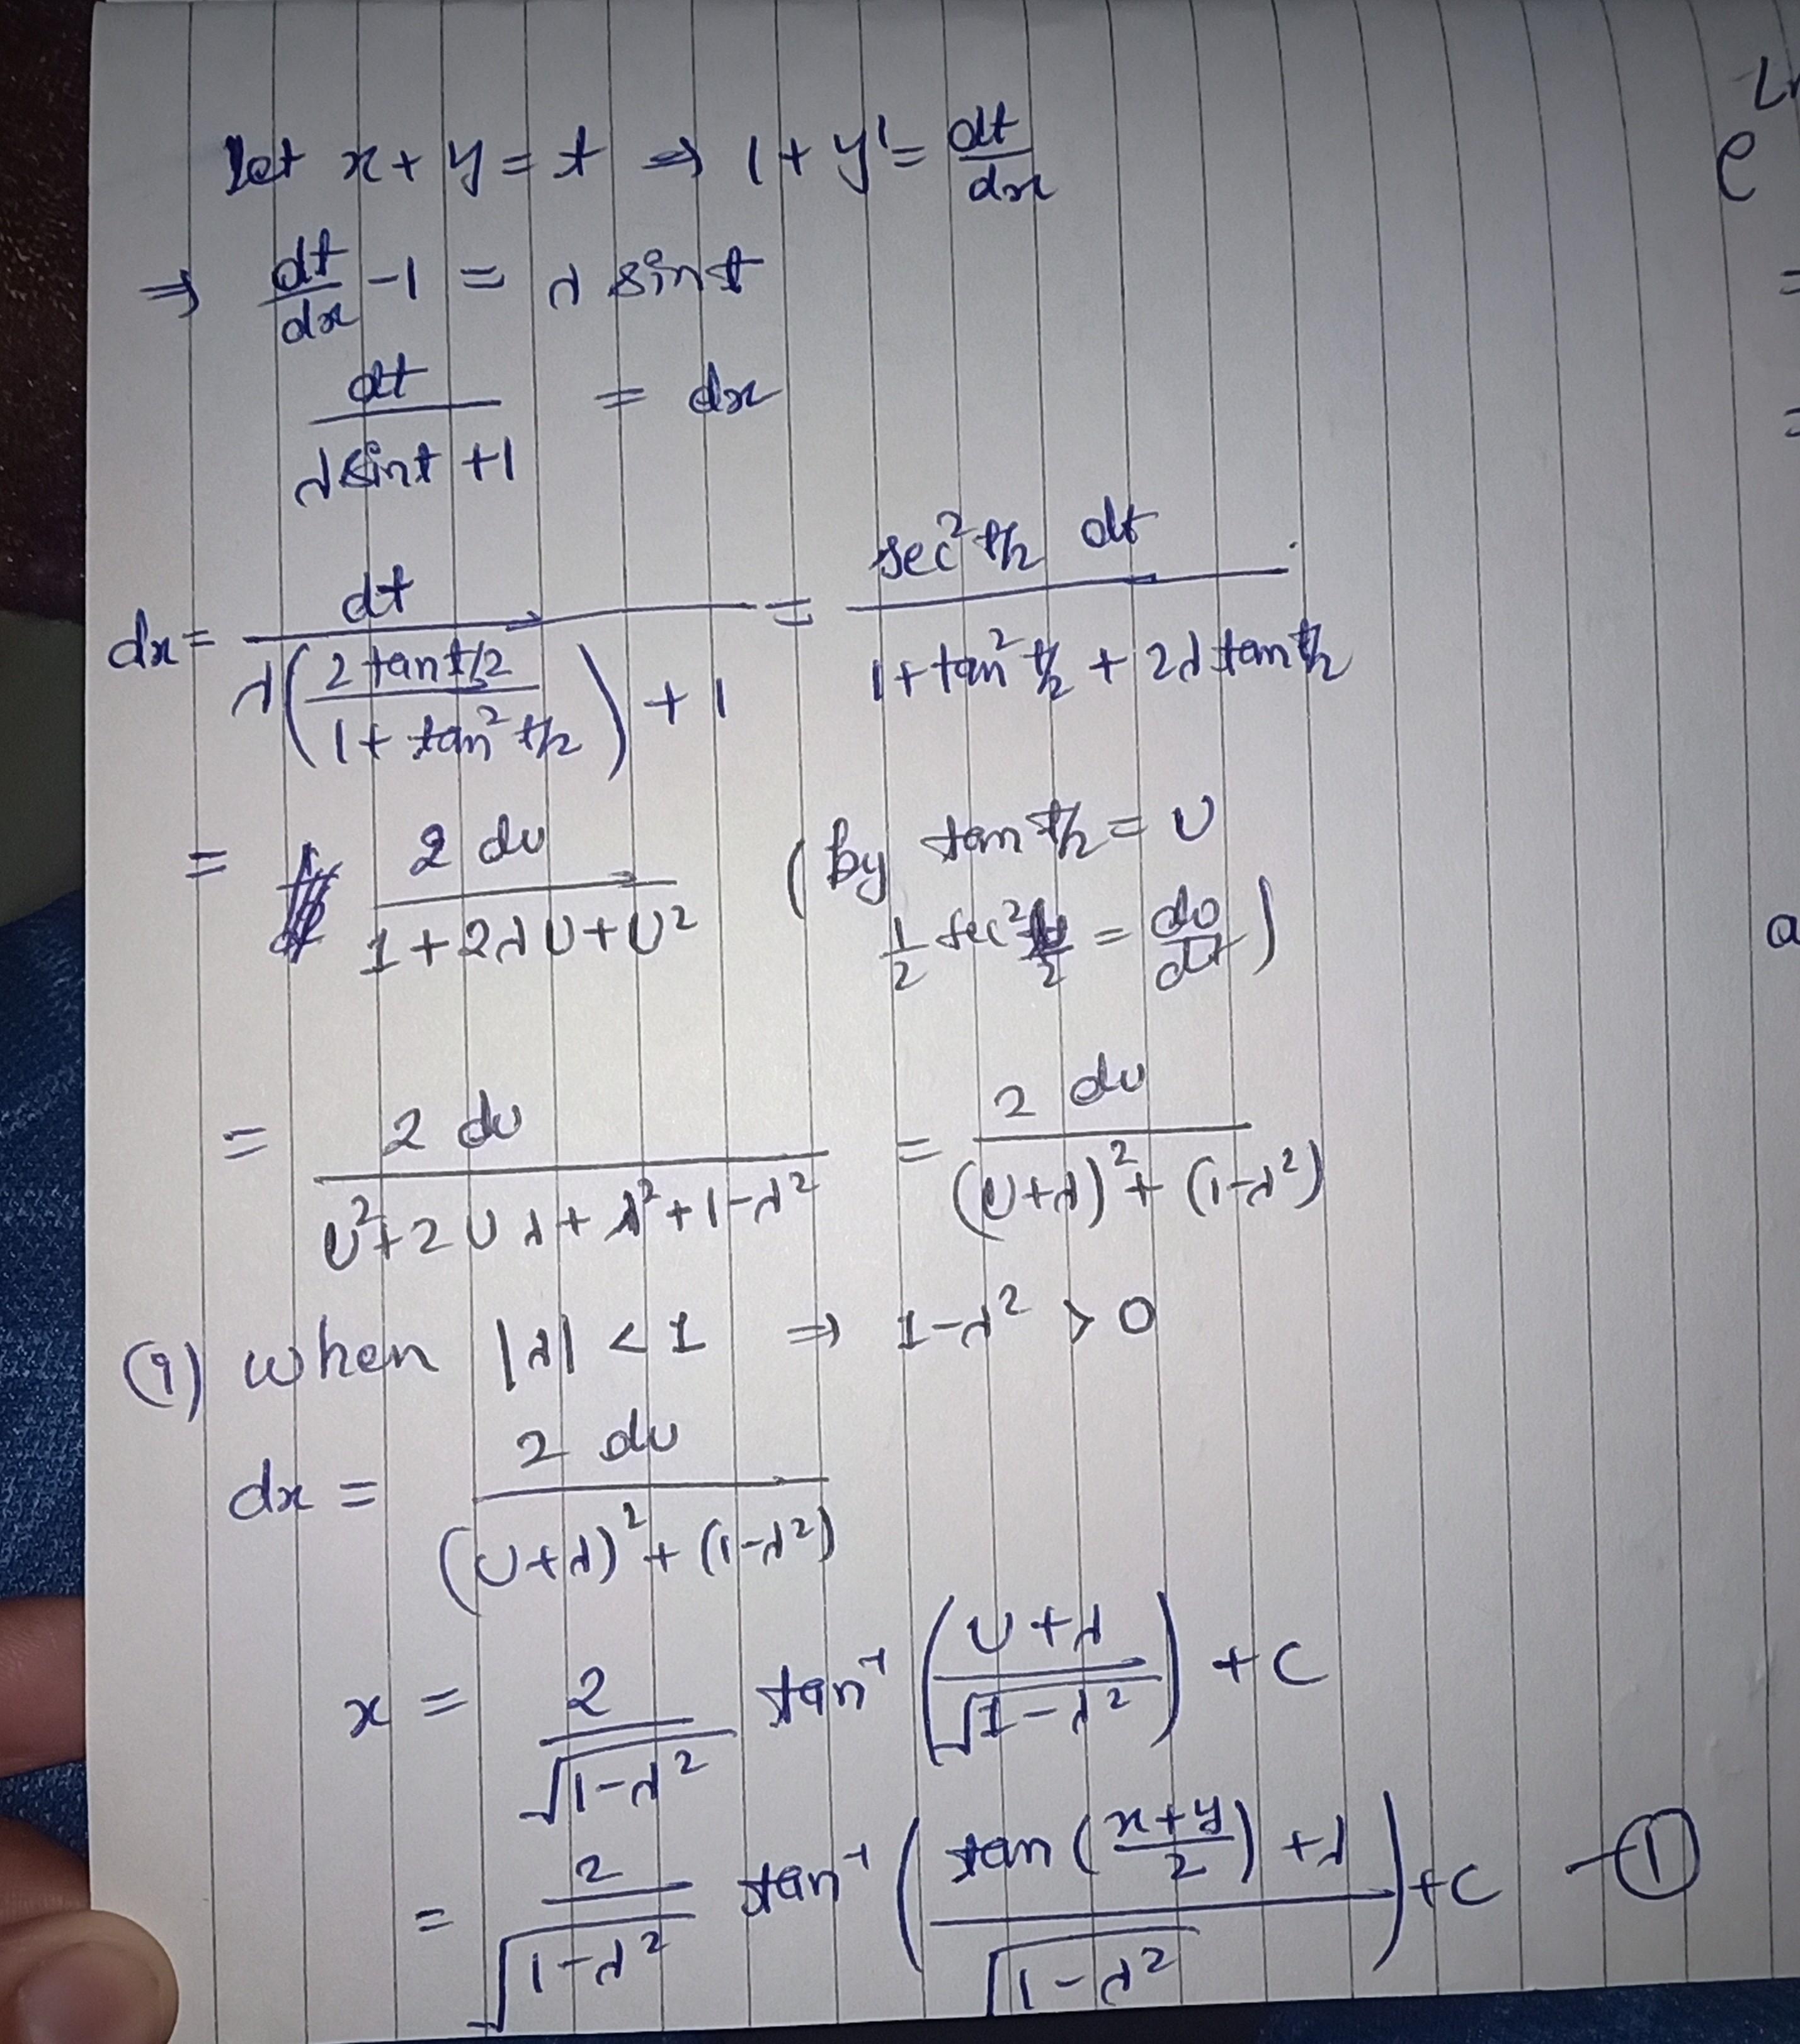 Let x + y = t ⇒ 1 + y' = dt/dx
⇒ dt/dx - 1 = λ sint
dt/(λ sint + 1) = dx
dx = dt/(λ(2 tan t/2/(1 + tan² t/2)) + 1) = sec² t/2 dt/(1 + tan² t/2 + 2λ tan t/2)
= 2 dv/(1 + 2λv + v²) (By tan t/2 = v
1/2 sec² t/2 = dv/dt)
= 2 dv/(v² + 2vλ + λ² + 1 - λ²) = 2 dv/((v + λ)² + (1 - λ²))
(i) when |λ| < 1 ⇒ 1 - λ² > 0
dx = 2 dv/((v + λ)² + (1 - λ²))
x = 2/√(1 - λ²) tan⁻¹((v + λ)/√(1 - λ²)) + C
= 2/√(1 - λ²) tan⁻¹((tan((x + y)/2) + λ)/√(1 - λ²)) + C —①
e
=
=
a